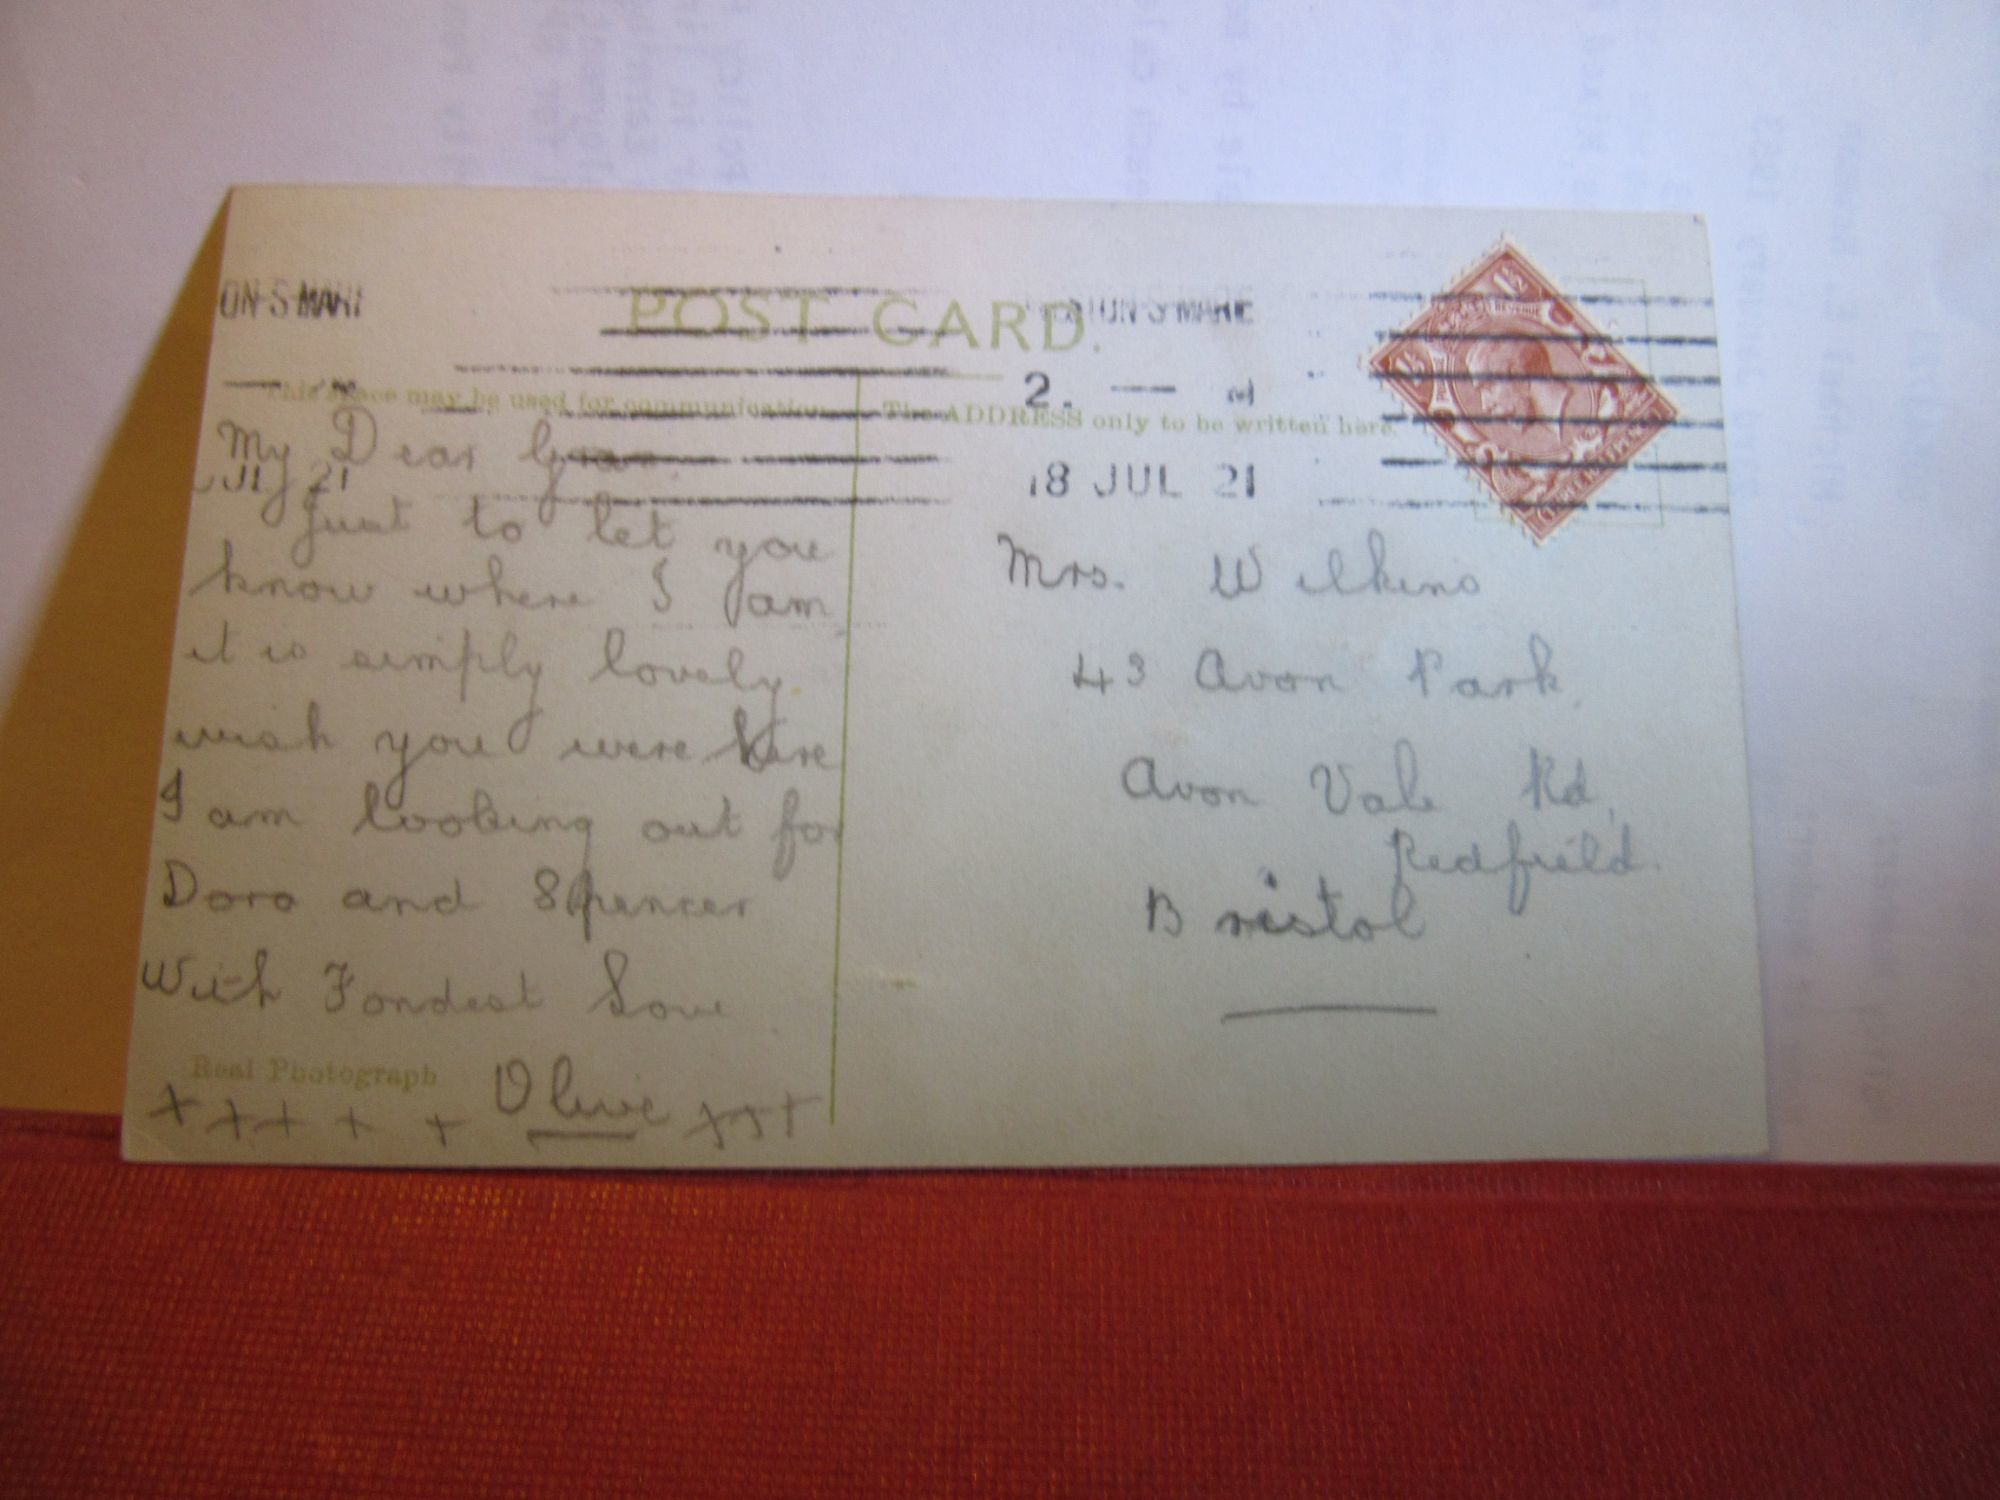 POST CARD.
This space may be used for communication
The ADDRESS only to be written here.
ON-S-MARE
2.
18 JUL 21
JL 21
1½
My Dear
Just to let you
know where I am
it is simply lovely.
wish you were here
I am looking out for
Doro and Spencer
With Fondest Love
Olive
x x x x x x x x
Real Photograph
Mrs. Wilkins
43 Avon Park
Avon Vale Rd,
Redfield.
Bristol